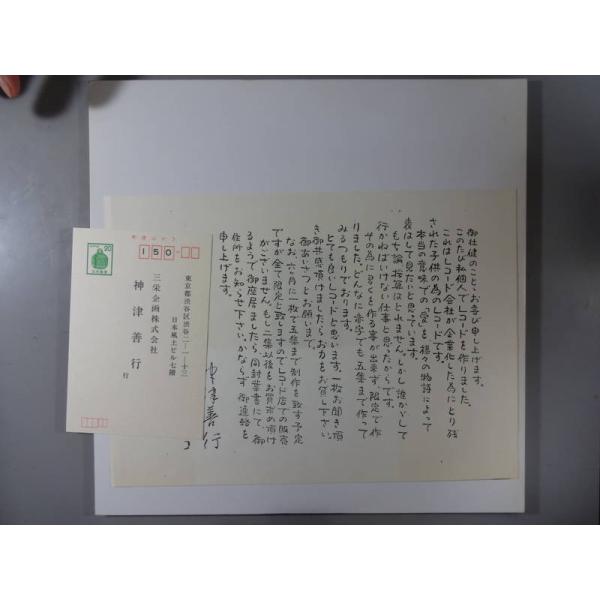 御仕健のこととお喜び申し上げます。
このたび私個人でレコードを作りました。
これはレコード会社が企業化した為にとり残
された子供の為のレコードです。
本当の意味での「愛」を様々の物語によって
表はして見たいと思っています。
もち論採算はとれません。しかし誰かがして
行かねばいけない仕事と思ったからです。
その為に多くを作る事が出来ず、限定で作
りました。どんなに赤字でも五集まで作って
みるつもりでおります。
とても良いレコードと思います。一枚お聞き頂
き御共感頂けましたらお力をお貸し下さい。
御あいさつとお願いまで。
なお、六ヶ月に一枚で五集まで制作を致す予定
ですが全て限定と致しますのでレコード店での販売
がございません。もし二集以後をお買求め頂け
るようで御座居ましたら、同封葉書にて、御
住所をお知らせ下さい。かならず御連絡を
申し上げます。
中津善行
郵便はがき
20
150
東京都渋谷区渋谷二ー一ー十三
日本風土ビル七階
三栄企画株式会社
神津善行
行